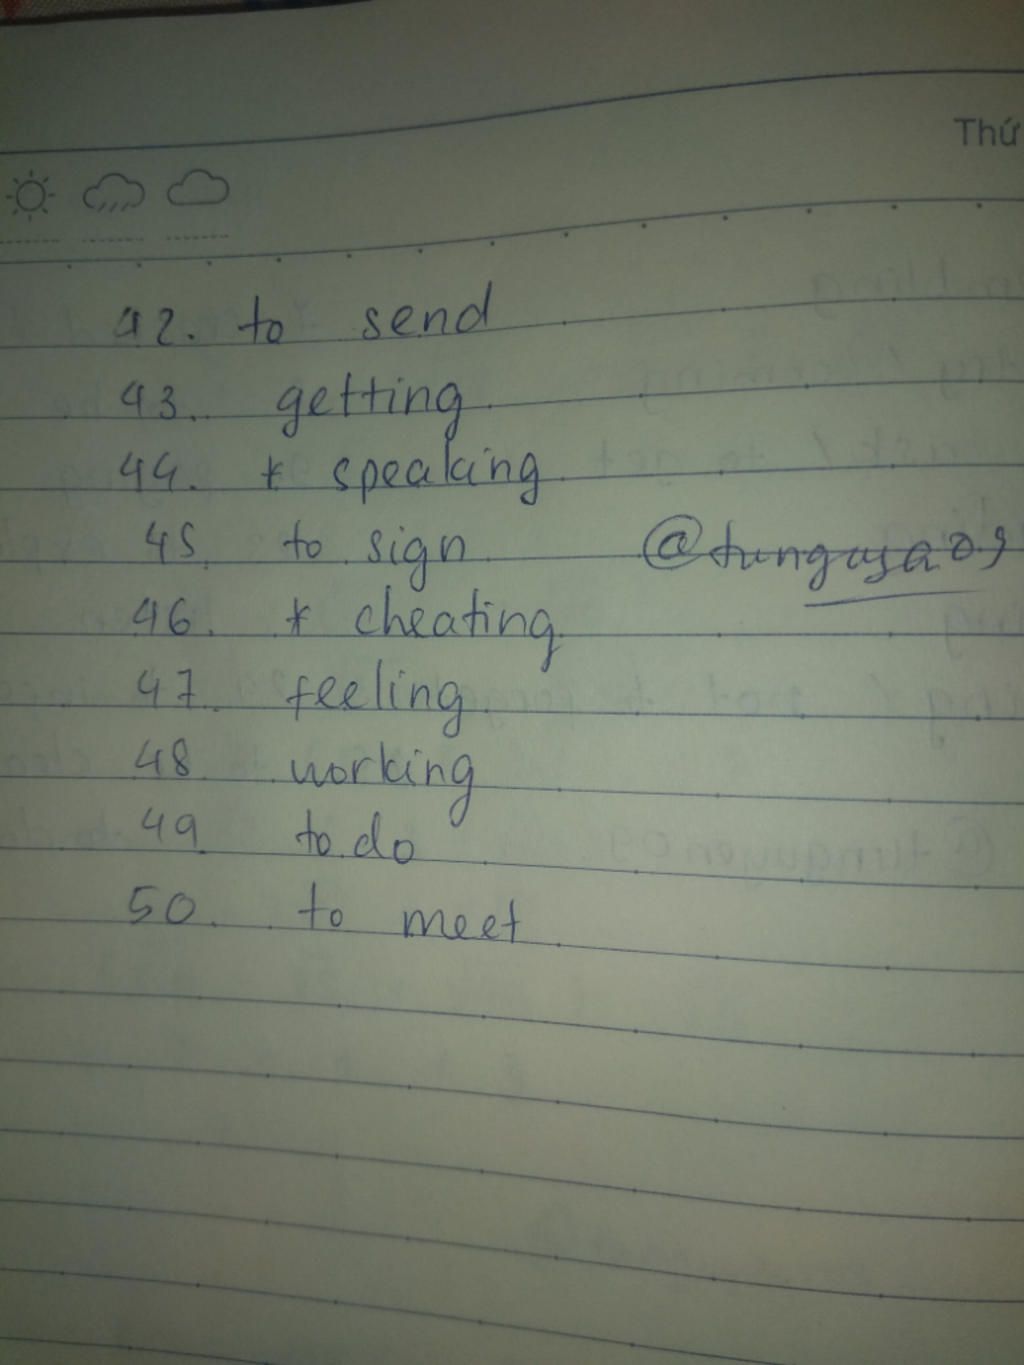 Thứ
42. to send
43. getting
44. * speaking
45. to sign
46. * cheating
47. feeling
48. working
49. to do
50. to meet